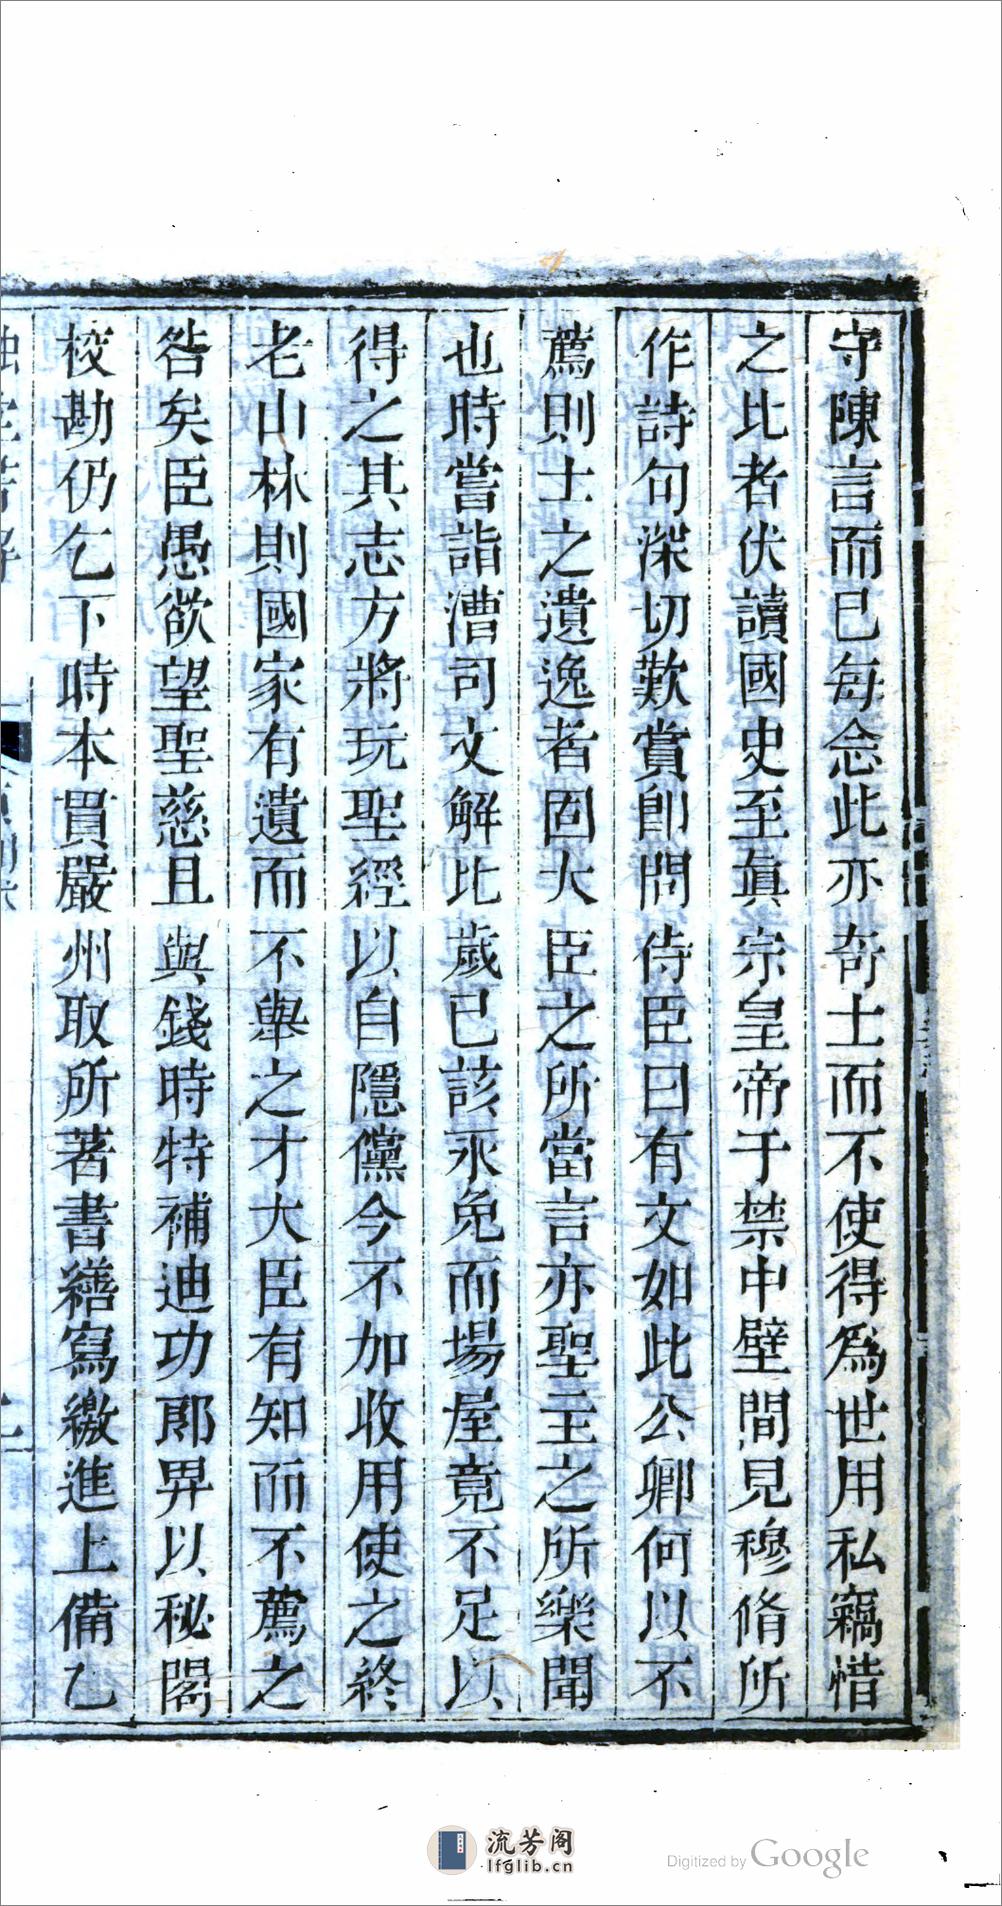 守陳言而已每念此亦奇士而不使得爲世用私竊惜
之比者伏讀國史至眞宗皇帝于禁中壁間見穆脩所
作詩句深切歎賞卽問侍臣曰有文如此公卿何以不
薦則士之遺逸者固大臣之所當言亦聖主之所樂聞
也時嘗詣漕司文解比歲已該永免而場屋竟不足以
得之其志方將玩聖經以自隱儻今不加收用使之終
老山林則國家有遺而不舉之才大臣有知而不薦之
咎矣臣愚欲望聖慈且與錢時特補迪功郎畀以秘閣
校勘仍乞下時本貫嚴州取所著書繕寫繳進上備乙
流芳阁
lfglib.cn
Digitized by Google